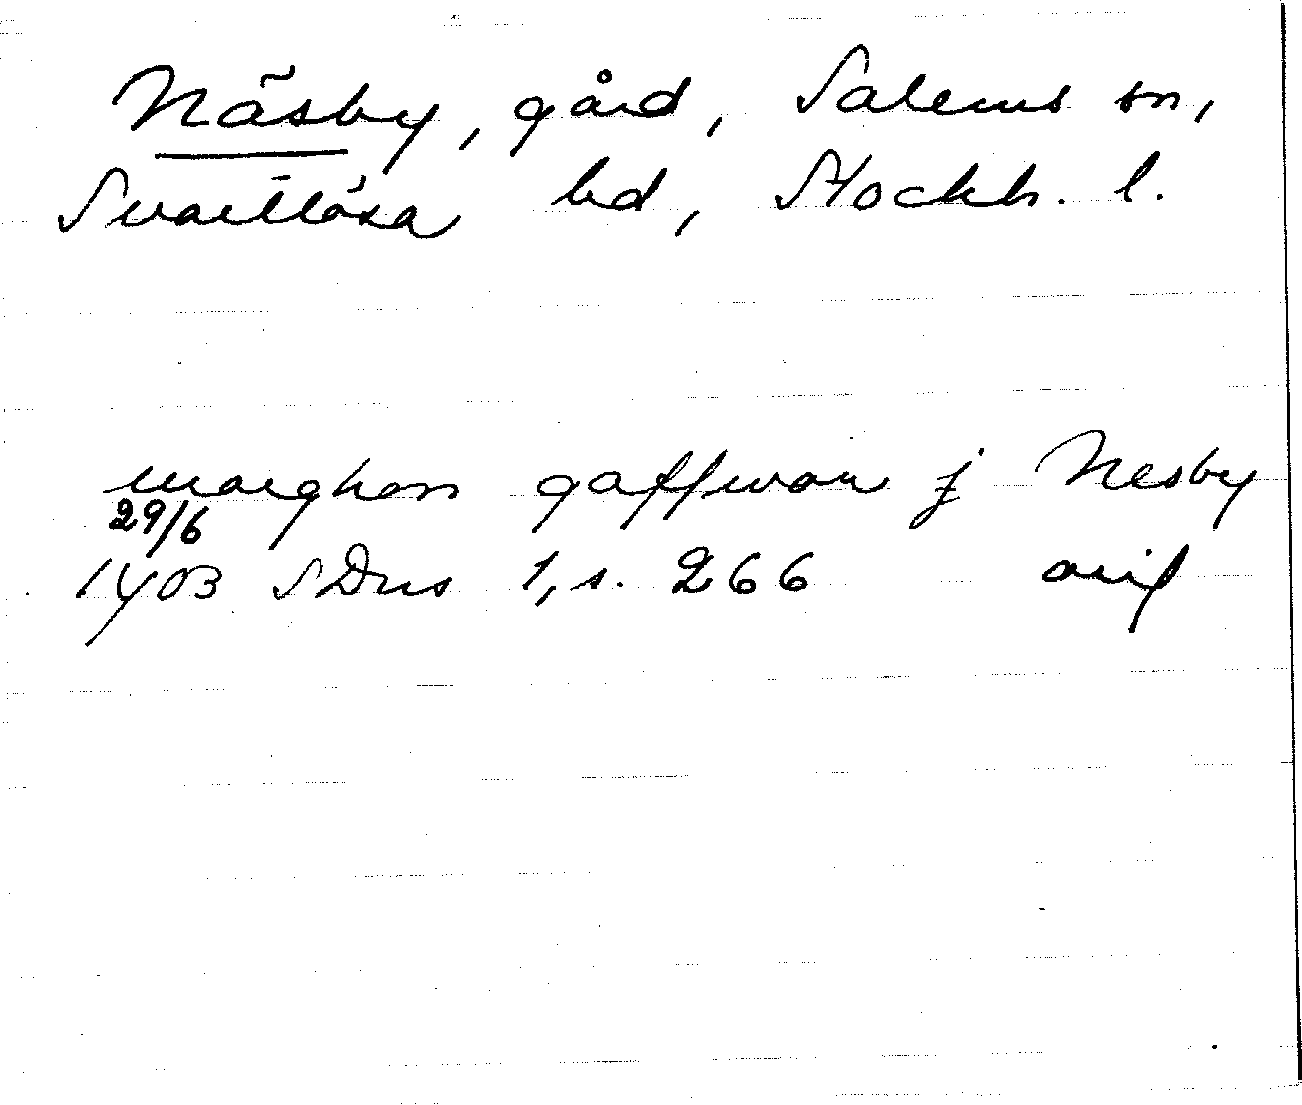 Näsby, gård, Salems sn,
Svartlösa hd, Stockh. l.
morghon gaffwan j Nesby
29/6
1403 SDns 1, s. 266 avs